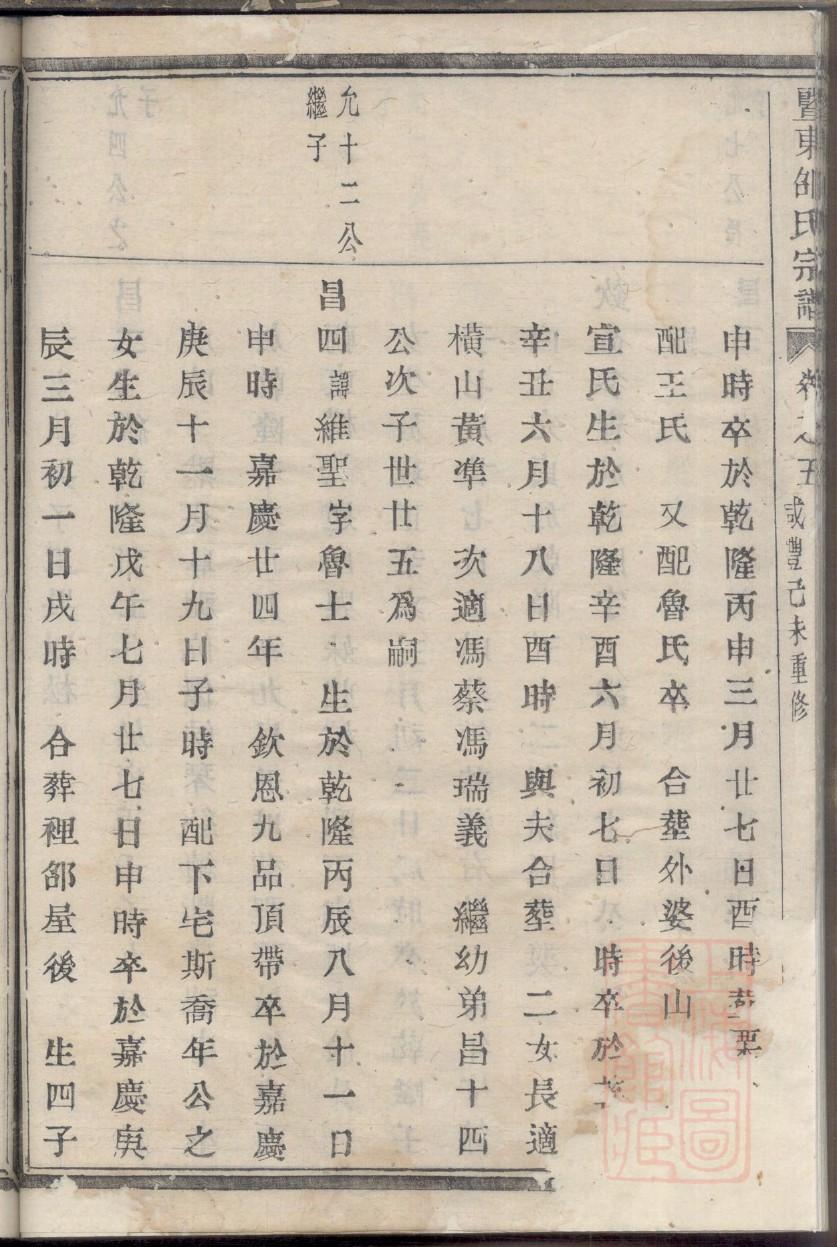 暨東邰氏宗譜
卷之五
咸豐己未重修
申時卒於乾隆丙申三月廿七日酉時
配王氏 又配魯氏卒 合塟外婆後山
宣氏生於乾隆辛酉六月初七日 時卒於
辛丑六月十八日酉時 與夫合塟 二女長適
橫山黃準 次適馮蔡馮瑞義 繼幼弟昌十四
公次子世廿五爲嗣
允十二公
繼子
昌四諱維聖字魯士 生於乾隆丙辰八月十一日
申時 嘉慶廿四年 欽恩九品頂帶卒於嘉慶
庚辰十一月十九日子時 配下宅斯喬年公之
女生於乾隆戊午七月廿七日申時卒於嘉慶庚
辰三月初一日戌時 合葬裡邰屋後 生四子